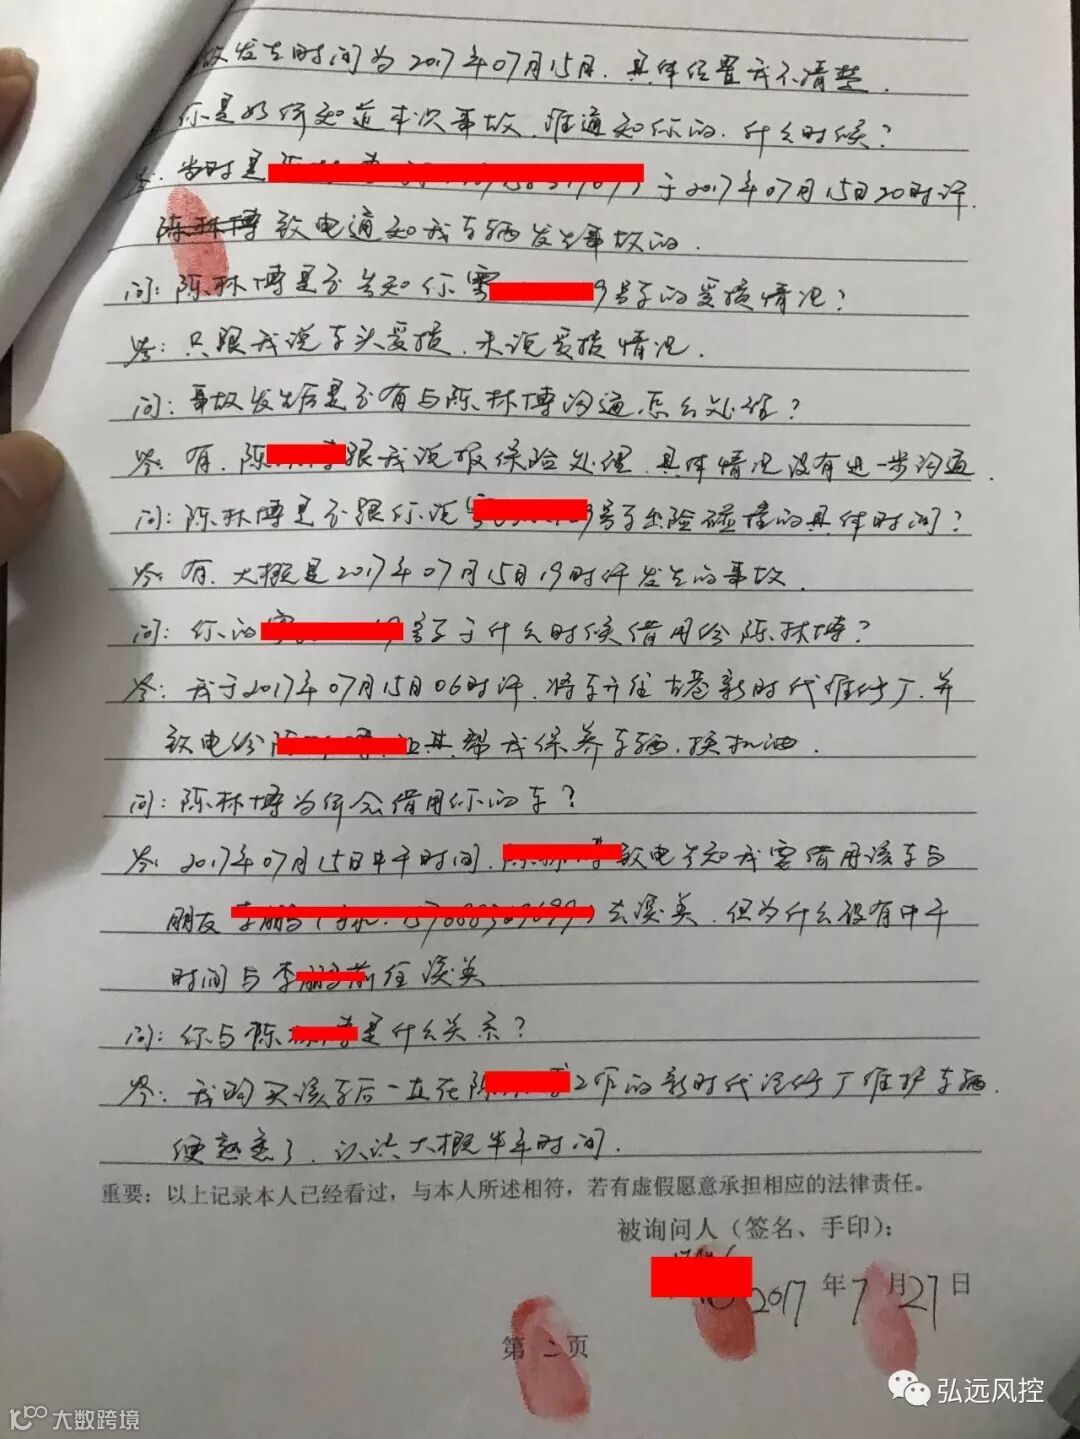 故发生时间为2017年07月15日，具体位置我不清楚．
你是如何知道本次事故，谁通知你的，什么时候？
答：当时是 于2017年07月15日20时许，
陈林博致电通知我车辆发生事故的．
问：陈林博是否告知你粤 号车的受损情况？
答：只跟我说车头受损，未说受损情况．
问：事故发生后是否有与陈林博沟通怎么处理？
答：有，陈 跟我说报保险处理，具体情况没有进一步沟通
问：陈林博是否跟你说 号车出险碰撞的具体时间？
答：有，大概是2017年07月15日19时许发生的事故．
问：你的 号车于什么时候借用给陈林博？
答：我于2017年07月15日06时许，将车开往古巷新时代维修厂，并
致电给 让其帮我保养车辆，换机油．
问：陈林博为何会借用你的车？
答：2017年07月15日中午时间， 致电告知我要借用该车与
朋友 去 ，但为什么没有中午
时间与李 前往
问：你与陈 是什么关系？
答：我购买该车后一直在陈 工作的新时代汽修厂维护车辆．
便熟悉了，认识大概半年时间．
重要：以上记录本人已经看过，与本人所述相符，若有虚假愿意承担相应的法律责任。
被询问人（签名、手印）：
2017年7月27日
第二页
弘远风控
大数跨境